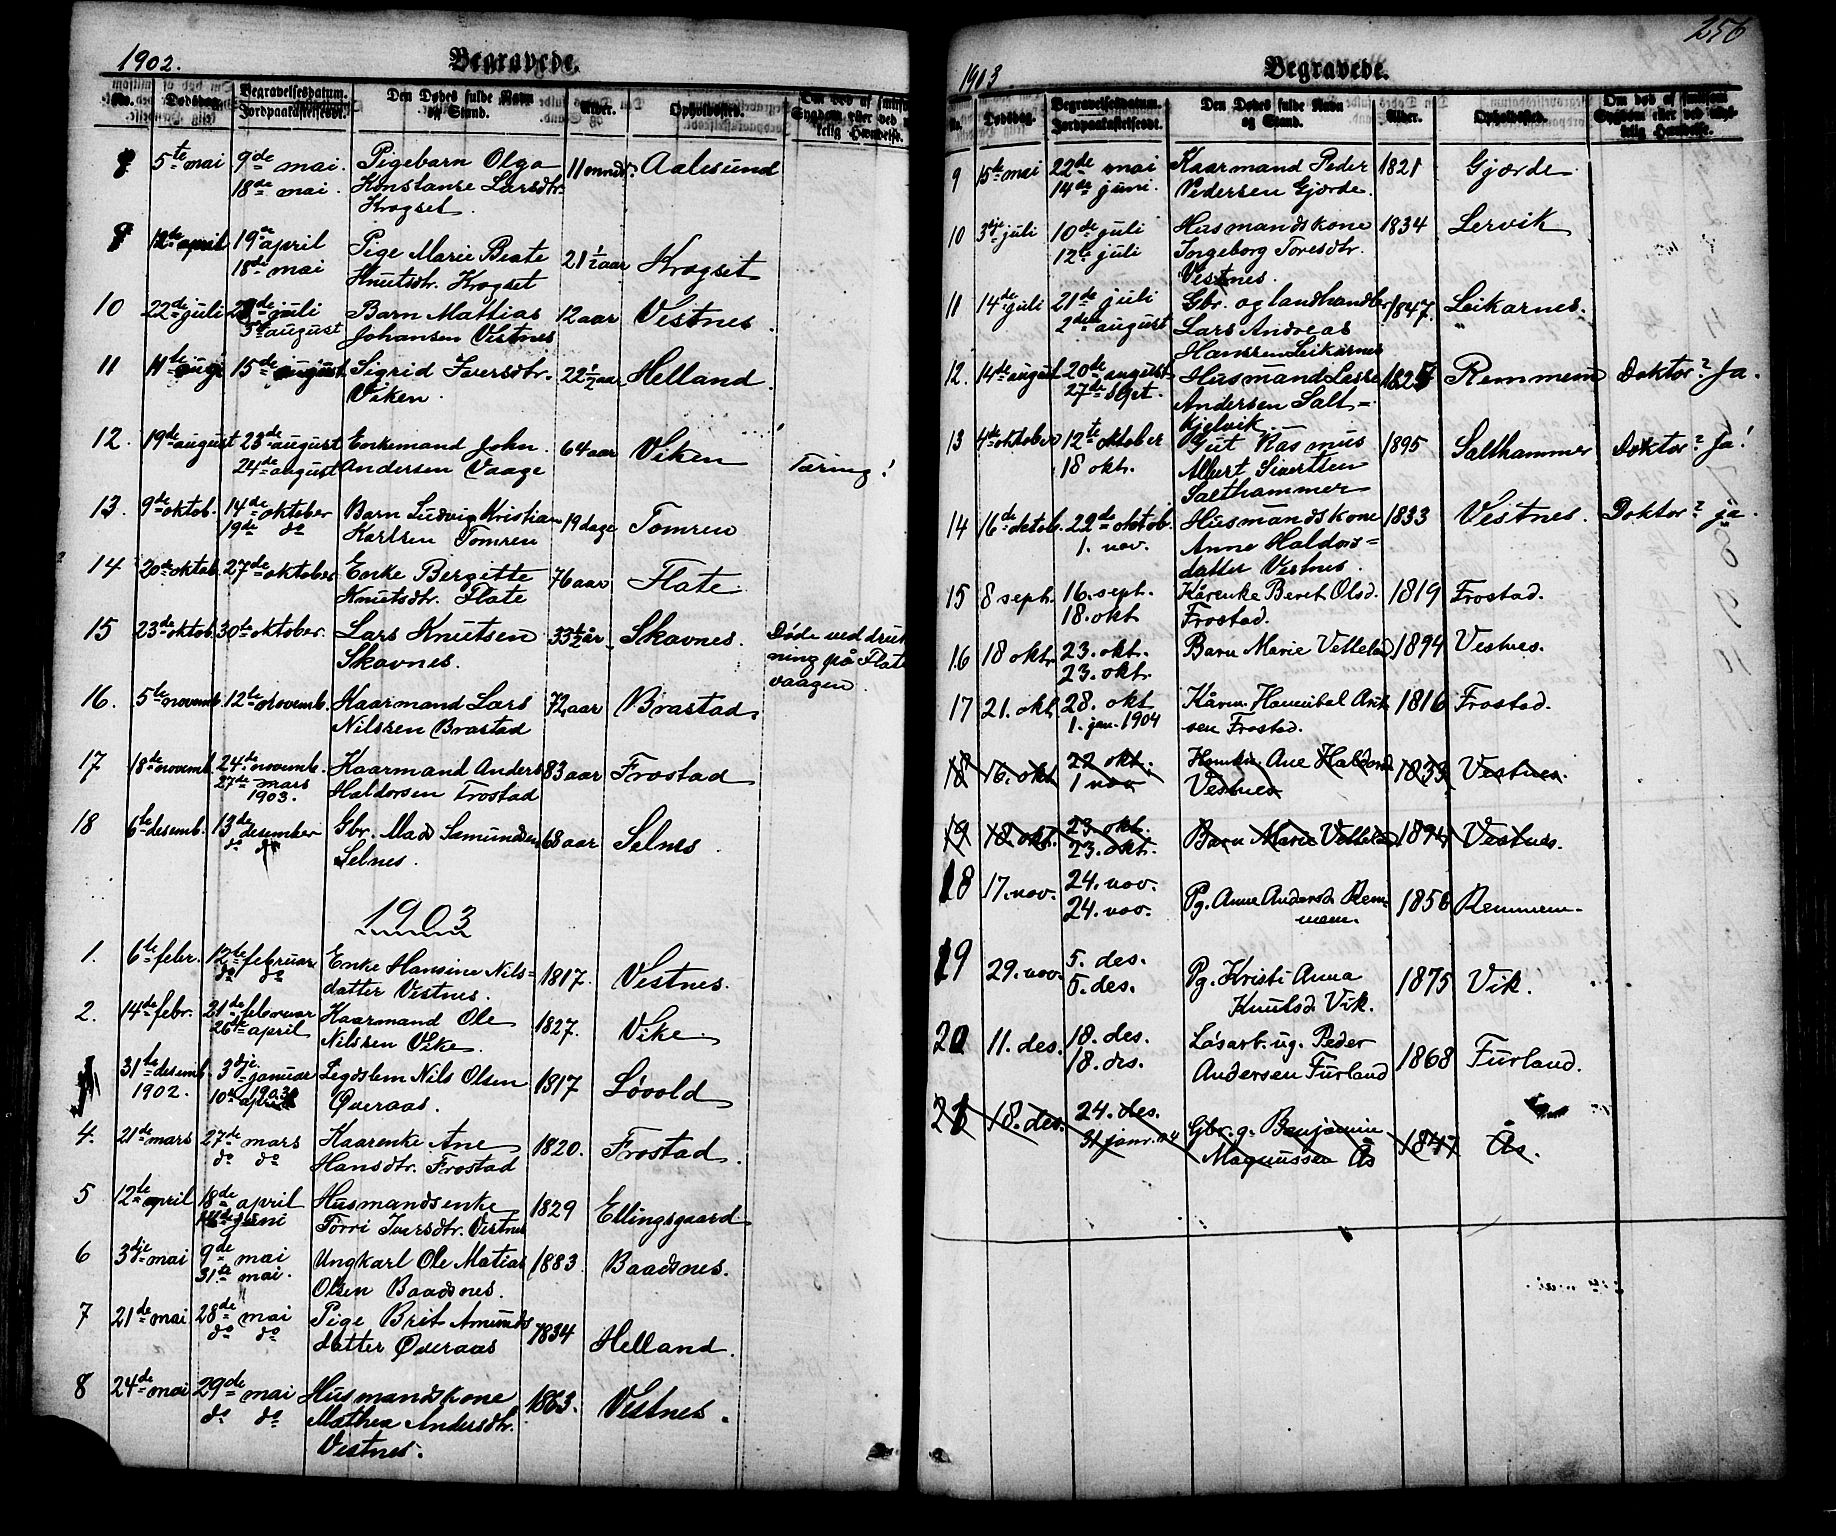 1902.
Begravede.
No.
Dødsdag.
Begravelsesdatum.
Jordpaakastelsesdt.
Den Dødes fulde Navn
og Stand.
Alder.
Opholdssted.
Om død af smitsom
Sygdom eller ved
kelig Hændelse.
8 5te mai 9de mai 18de mai. Pigebarn Olga
Konstanse Larsdtr.
Krogset. 11 mned. Aalesund
9 12de april 19de april
18de mai Pige Marie Beate
Knutsdtr. Krogset 21 1/2 aar Krogset
10 22de juli 29de juli
3de august Barn Mathias
Johansen Vestnes 12 aar Vestnes.
11 11te aug. 15de august Sigrid Iversdtr.
Viken. 22 1/2 aar Helland.
12. 19de august 23de august
24de august Enkemand John
Andersen Vaage 64 aar Viken Tæring!
13. 9de oktob. 14de oktober
19de do Barn Ludvig Kristian
Karlsen Tomren 19 dage Tomren
14 20de oktob. 27de oktober Enke Bergitte
Knutsdtr. Flate 76 aar Flate
15 23de oktob. 30te oktober. Lars Knutsen
Skavnes. 33 1/2 år Skavnes. Døde ved druk
ning på Flate
vaagen.
16. 5te novemb. 12te novemb. Kaarmand Lars
Nilssen Brastad 72 aar Brastad.
17 18de novemb. 24de novemb.
27de mars
1903. Kaarmand Anders
Haldorsen Frostad 83 aar Frostad
18 6te desemb. 13de desember
do do Gbr. Mads Samundsen
Selnes. 68 aar Selnes.
1903
1. 6te febr. 12te februar
do do Enke Hansine Nils=
datter Vestnes. 1817. Vestnes.
2. 14de febr. 21de februar
26de april Kaarmand Ole
Nilssen Vike. 1827. Vike.
31te desemb.
1902. 3dje januar
1903
10de april Legdslem Nils Olsen
Øveraas. 1817 Løvold
4. 21de mars 27de mars
do do Kaarenke Ane
Hansdtr. Frostad 1820. Frostad.
5 12te april 18de april
14de juni Husmandsenke
Torri Iversdtr. Vestnes 1829 Ellingsgaard
6 3dje mai 9de mai
31te mai. Ungkarl Ole Matias
Olsen Baadsnes. 1883. Baadsnes.
7 21de mai 28de mai
do do Pige Brit Amunds
datter Øveraas 1834 Helland.
8 24de mai 29de mai
do do Husmandskone
Mathea Andersdtr.
Vestnes. 1863. Vestnes.
256
1903.
Begravede.
No.
Dødsdag.
Begravelsesdatum.
Jordpaakastelsesdt.
Den Dødes fulde Navn
og Stand.
Alder.
Opholdssted.
Om død af smitsom
Sygdom eller ved ulyk-
kelig Hændelse.
9 15de mai 22de mai
14de juni. Kaarmand Peder
Pedersen Gjærde. 1821 Gjærde
10 3dje juli 10de juli
12te juli Husmandskone
Ingeborg Toresdtr.
Vestnes. 1834 Lervik
11 14de juli 21de juli
2den august Gbr. og landhandler
Lars Andreas
Hanssen Leikarnes 1847. Leikarnes.
12. 14de august 20de august
27de sept. Husmand Lasse
Andersen Salt=
kjelvik. 1827 Remmem Doktor? Ja.
13 4de oktober 12te oktober
18 okt. Gut Rasmus
Albert Sivertsen
Salthammer 1895 Salthammer Doktor? Ja!
14 16de oktob. 22de oktob.
1. nov. Husmandskone
Anne Haldors=
datter Vestnes. 1833 Vestnes. Doktor? ja.
15 8 sept. 16. sept.
18. okt Kårenke Beret Olsd.
Frostad. 1819 Frostad.
16 18 okt. 23. okt.
23. okt. Barn Marie Vetteland 1894 Vestnes.
17 21. okt. 28. okt
1. jan. 1904 Kårm. Hannibal Ant
sen Frostad. 1816 Frostad.
18 16. okt 22 okt.
1 nov Ane Haldorsd
Vestnes 1833 Vestnes.
19 18. okt. 23. okt.
23. okt. Barn Marie Vetteland 1894 Vestnes.
18 17. nov. 24. nov.
24. nov. Pg. Anne Andersd. Rem
mem. 1856 Remmem.
19 29. nov. 5. des.
5. des. Pg. Kristi Anna
Knutsd Vik. 1875 Vik.
20 11. des. 18. des.
18. des. Løsarb. ug. Peder
Andersen Furland 1868 Furland.
21 18. des. 24. des.
31 janr. 04 Gbr. g. Benjamin
Magnussen Ås 1847 Ås.